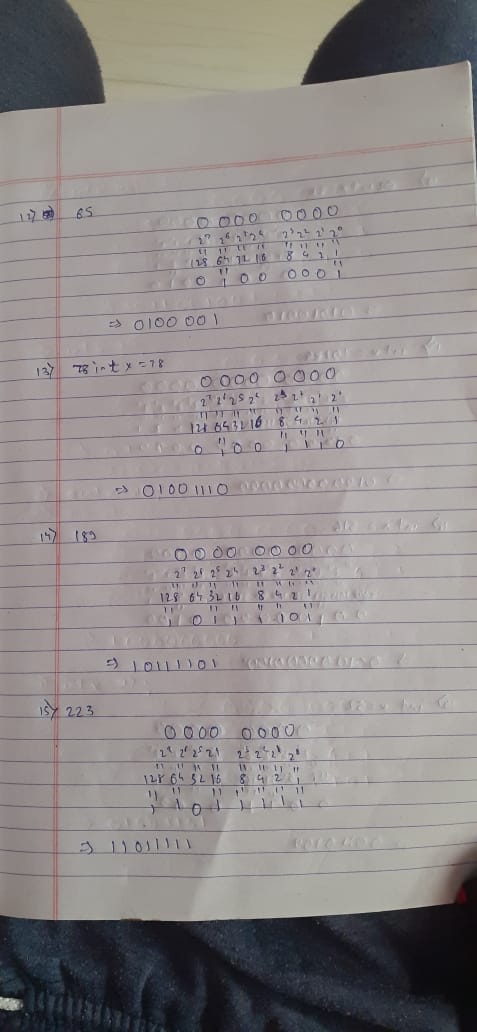 12) 65
0 0 0 0 0 0 0 0
2⁷ 2⁶ 2⁵ 2⁴ 2³ 2² 2¹ 2⁰
" " " " " " " "
128 64 32 16 8 4 2 1
" "
0 1 0 0 0 0 0 1
⇒ 0100 001
13) 78 int x = 78
0 0 0 0 0 0 0 0
2⁷ 2⁶ 2⁵ 2⁴ 2³ 2² 2¹ 2⁰
" " " " " " " "
128 64 32 16 8 4 2 1
" " " "
0 1 0 0 1 1 1 0
⇒ 01001110
14) 189
0 0 0 0 0 0 0 0
2⁷ 2⁶ 2⁵ 2⁴ 2³ 2² 2¹ 2⁰
" " " " " " " "
128 64 32 16 8 4 2 1
" " " " " "
1 0 1 1 1 1 0 1
⇒ 10111101
15) 223
0 0 0 0 0 0 0 0
" " " " " " " "
128 64 32 16 8 4 2 1
" " " " " " "
1 1 0 1 1 1 1 1
⇒ 11011111